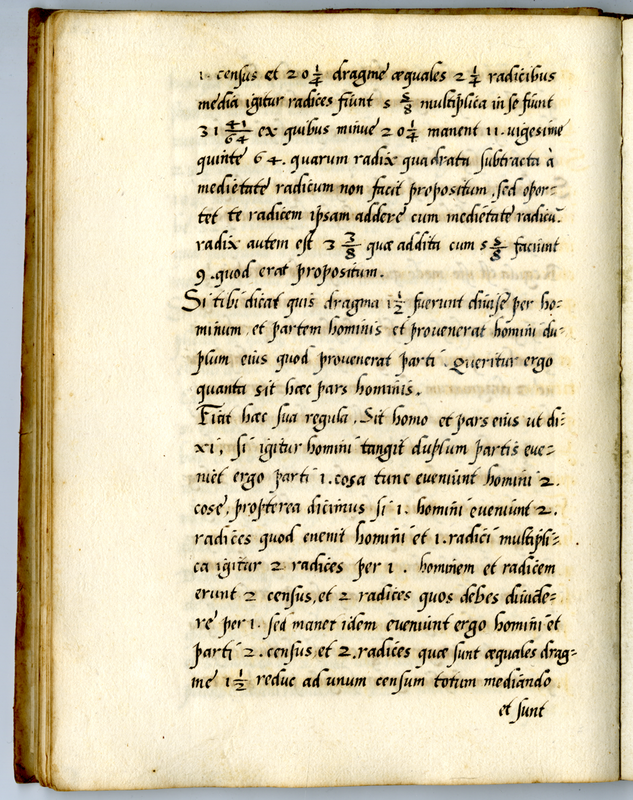 1. census et 20 1/4 dragme æquales 2 1/4 radicibus
media igitur radices fiunt 5 5/8 multiplica in se fiunt
31 41/64 ex quibus minue 20 1/4 manent 11. vigesime
quinte 64. quarum radix quadrata subtracta à
medietate radicum non facit propositum, sed opor-
tet te radicem ipsam addere cum medietate radicũ.
radix autem est 3 3/8 quæ addita cum 5 5/8 faciunt
9. quod erat propositum.
Si tibi dicat quis dragma 1 1/2 fuerunt divise per ho-
minum et partem hominis et provenerat homini du-
plum eius quod provenerat parti. Queritur ergo
quanta sit hæc pars hominis.
Fiat hæc sua regula. Sit homo et pars eius ut di-
xi, si igitur homini tangit duplum partis eve-
niet ergo parti 1. cosa tunc eveniunt homini 2.
cose, propterea dicimus si 1. homini eveniunt 2.
radices quod evenit homini et 1. radici multipli-
ca igitur 2 radices per 1. hominem et radicem
erunt 2 census, et 2 radices quos debes divide-
re per 1. sed manet idem eveniunt ergo homini et
parti 2. census et 2. radices quæ sunt æquales drag-
me 1 1/2 reduc ad unum censum totum mediando
et sunt